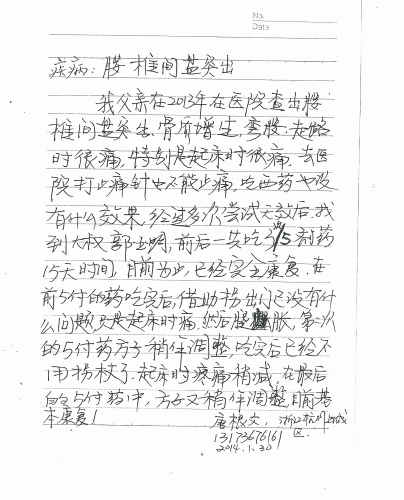 No.
Date
疾病: 腰椎间盘突出
我父亲在2013年在医院查出腰
椎间盘突出、骨质增生,弯腰、走路
时很痛,特别是起床时很痛,去医
院打止痛针也不能止痛,吃西药也没
有什么效果,经过多次尝试无效后,找
到大叔郭,前后一共吃了15剂药
15天时间,目前为止,已经完全康复,在
前5付的药吃完后,借助拐出门已没有什
么问题,只是起床时痛,然后腿胀,第二次
的5付药方子稍作调整,吃完后已经不
用拐杖了,起床时疼痛稍减,在最后
的5付药中,方子又稍作调整,目前基
本康复!
唐根文,浙江杭州
13173676161 区.
2014.1.30